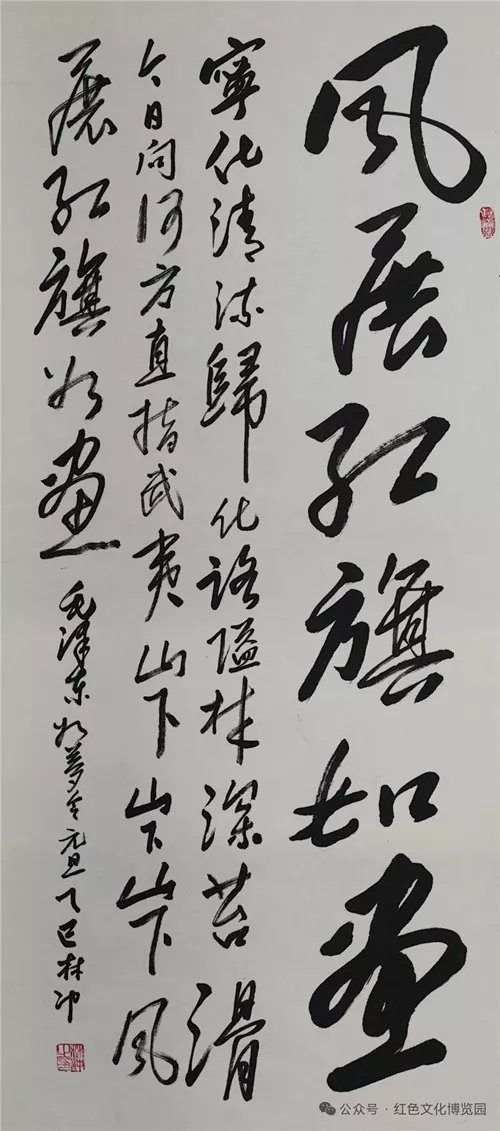 风展红旗如畫
寧化清流歸化路隘林深苔滑
今日向何方直指武夷山下山下山下风
展红旗如畫
毛泽东如梦令元旦乙巳林冲
公众号 · 红色文化博览园